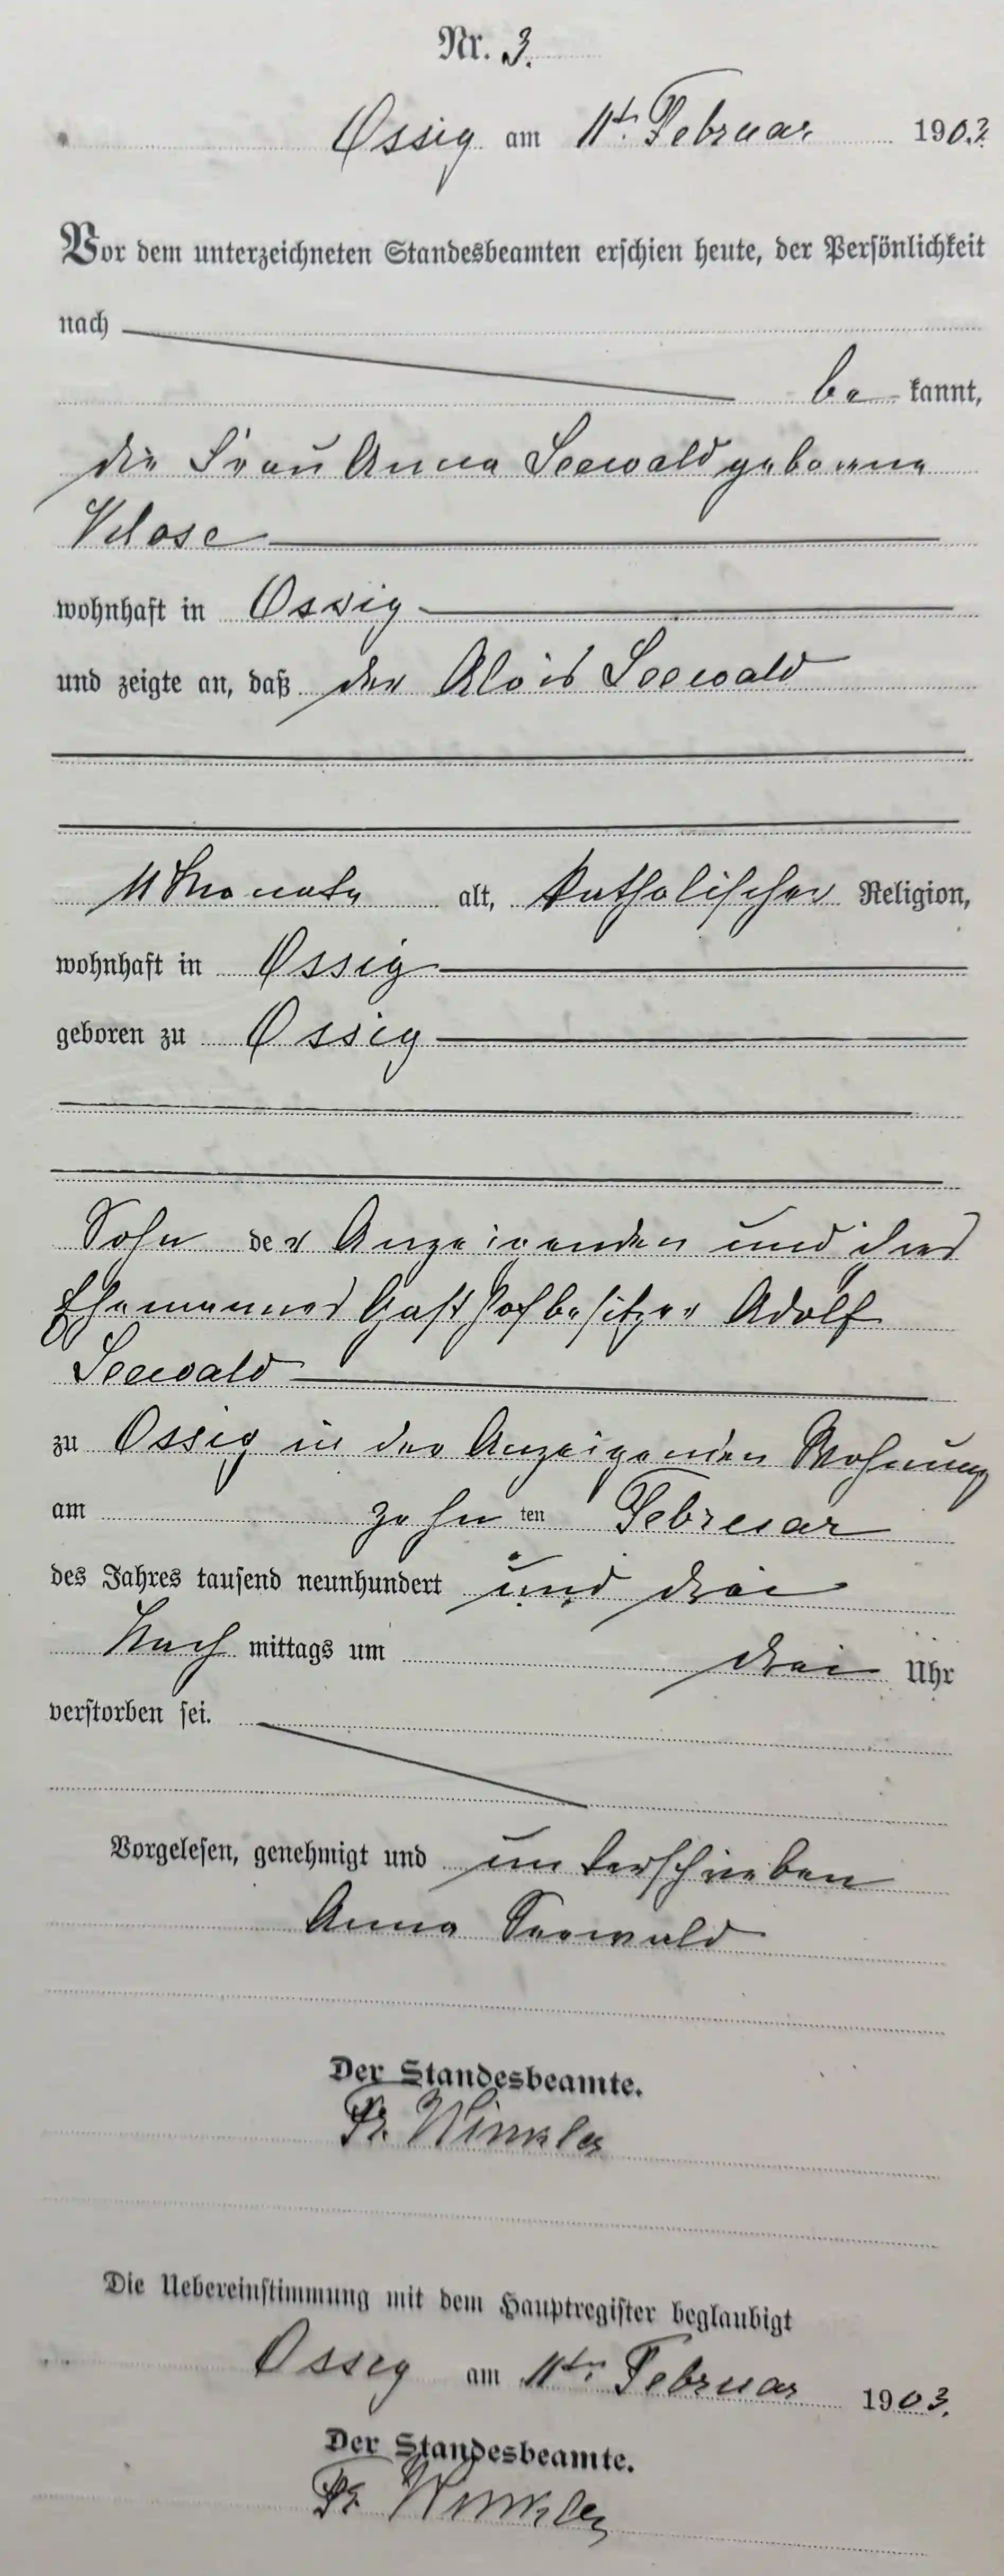 Nr. 3.
Ossig am 11ten Februar 1903.
Vor dem unterzeichneten Standesbeamten erschien heute, der Persönlichkeit
nach
be kannt,
die Frau Anna Seewald geborene
Klose
wohnhaft in Ossig
und zeigte an, daß der Alois Seewald
11 Monate alt, katholischer Religion,
wohnhaft in Ossig
geboren zu Ossig
Sohn der Anzeigenden und ihres
Ehemannes Gasthofbesitzer Adolf
Seewald
zu Ossig in der Anzeigenden Wohnung
am zehn ten Februar
des Jahres tausend neunhundert und drei
Nach mittags um drei Uhr
verstorben sei.
Vorgelesen, genehmigt und unterschrieben
Anna Seewald
Der Standesbeamte.
Fr. Winkler
Die Uebereinstimmung mit dem Hauptregister beglaubigt
Ossig am 11ten Februar 1903.
Der Standesbeamte.
Fr. Winkler